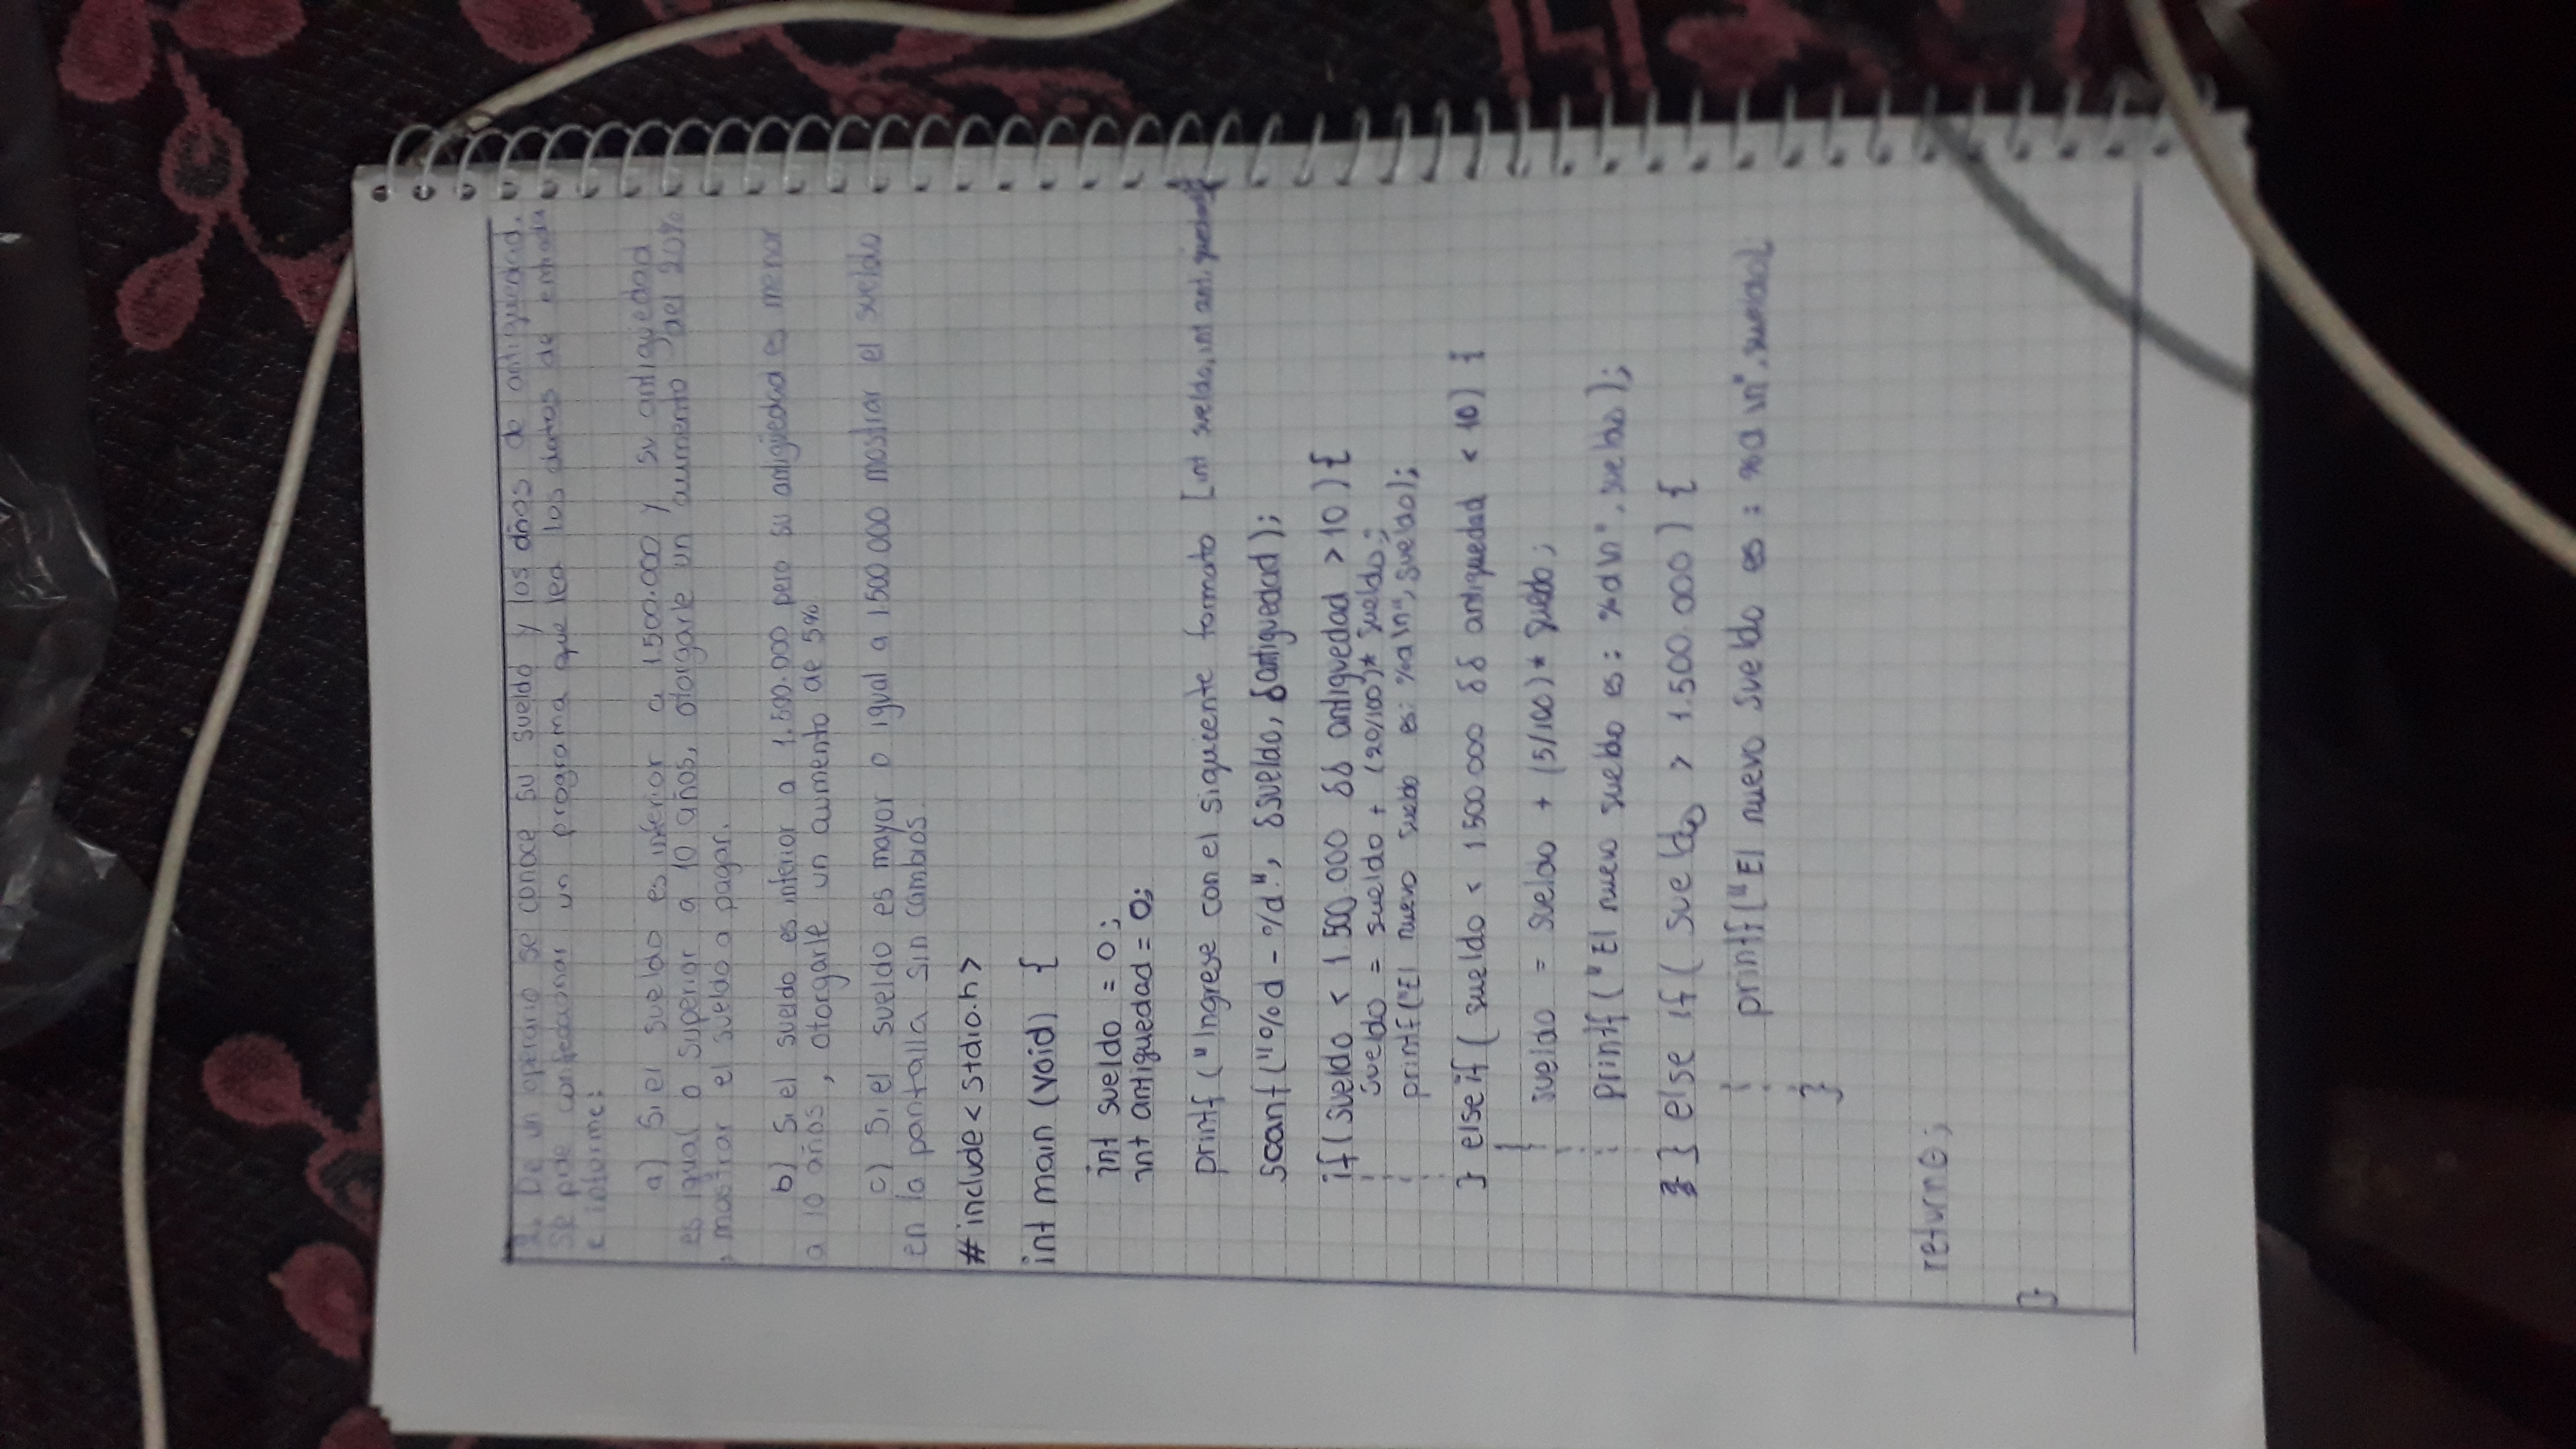 2. De un operario se conoce su sueldo y los años de antiguedad.
Se pide confeccionar un programa que lea los datos de entrada
e informe:
a) Si el sueldo es inferior a 1.500.000 y su antiguedad
es igual o superior a 10 años, otorgarle un aumento del 20%
, mostrar el sueldo a pagar.
b) Si el sueldo es inferior a 1.500.000 pero su antigüedad es menor
a 10 años, otorgarle un aumento de 5%
c) Si el sueldo es mayor o igual a 1.500.000 mostrar el sueldo
en la pantalla sin cambios.
#include<stdio.h>
int main (void) {
int sueldo = 0;
int antiguedad = 0;
printf ("Ingrese con el siguicente formato [int sueldo, int antiguedad]
scanf ("%d - %d", &sueldo, &antiguedad);
if (sueldo < 1 500.000 && antiguedad > 10) {
sueldo = sueldo + (20/100)* sueldo;
printf("El nuevo sueldo es: %d\n", sueldo);
} else if ( sueldo < 1 500 000 && antiguedad < 10) {
sueldo = sueldo + (5/100)* sueldo;
printf ("El nuevo sueldo es: %d\n", sueldo);
} else if ( sueldo > 1.500.000) {
printf("El nuevo sueldo es : %d\n", sueldo);
}
return 0;
}